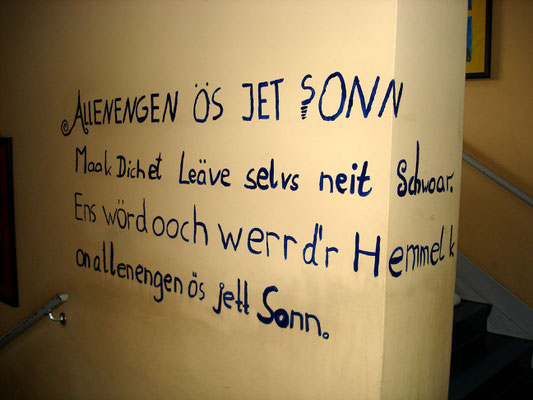 ALLENENGEN ÖS JET SONN
Maak Dich et Leäve selvs neit Schwoar.
Ens wörd ooch werr d'r Hemmel k
on allenengen ös jett Sonn.